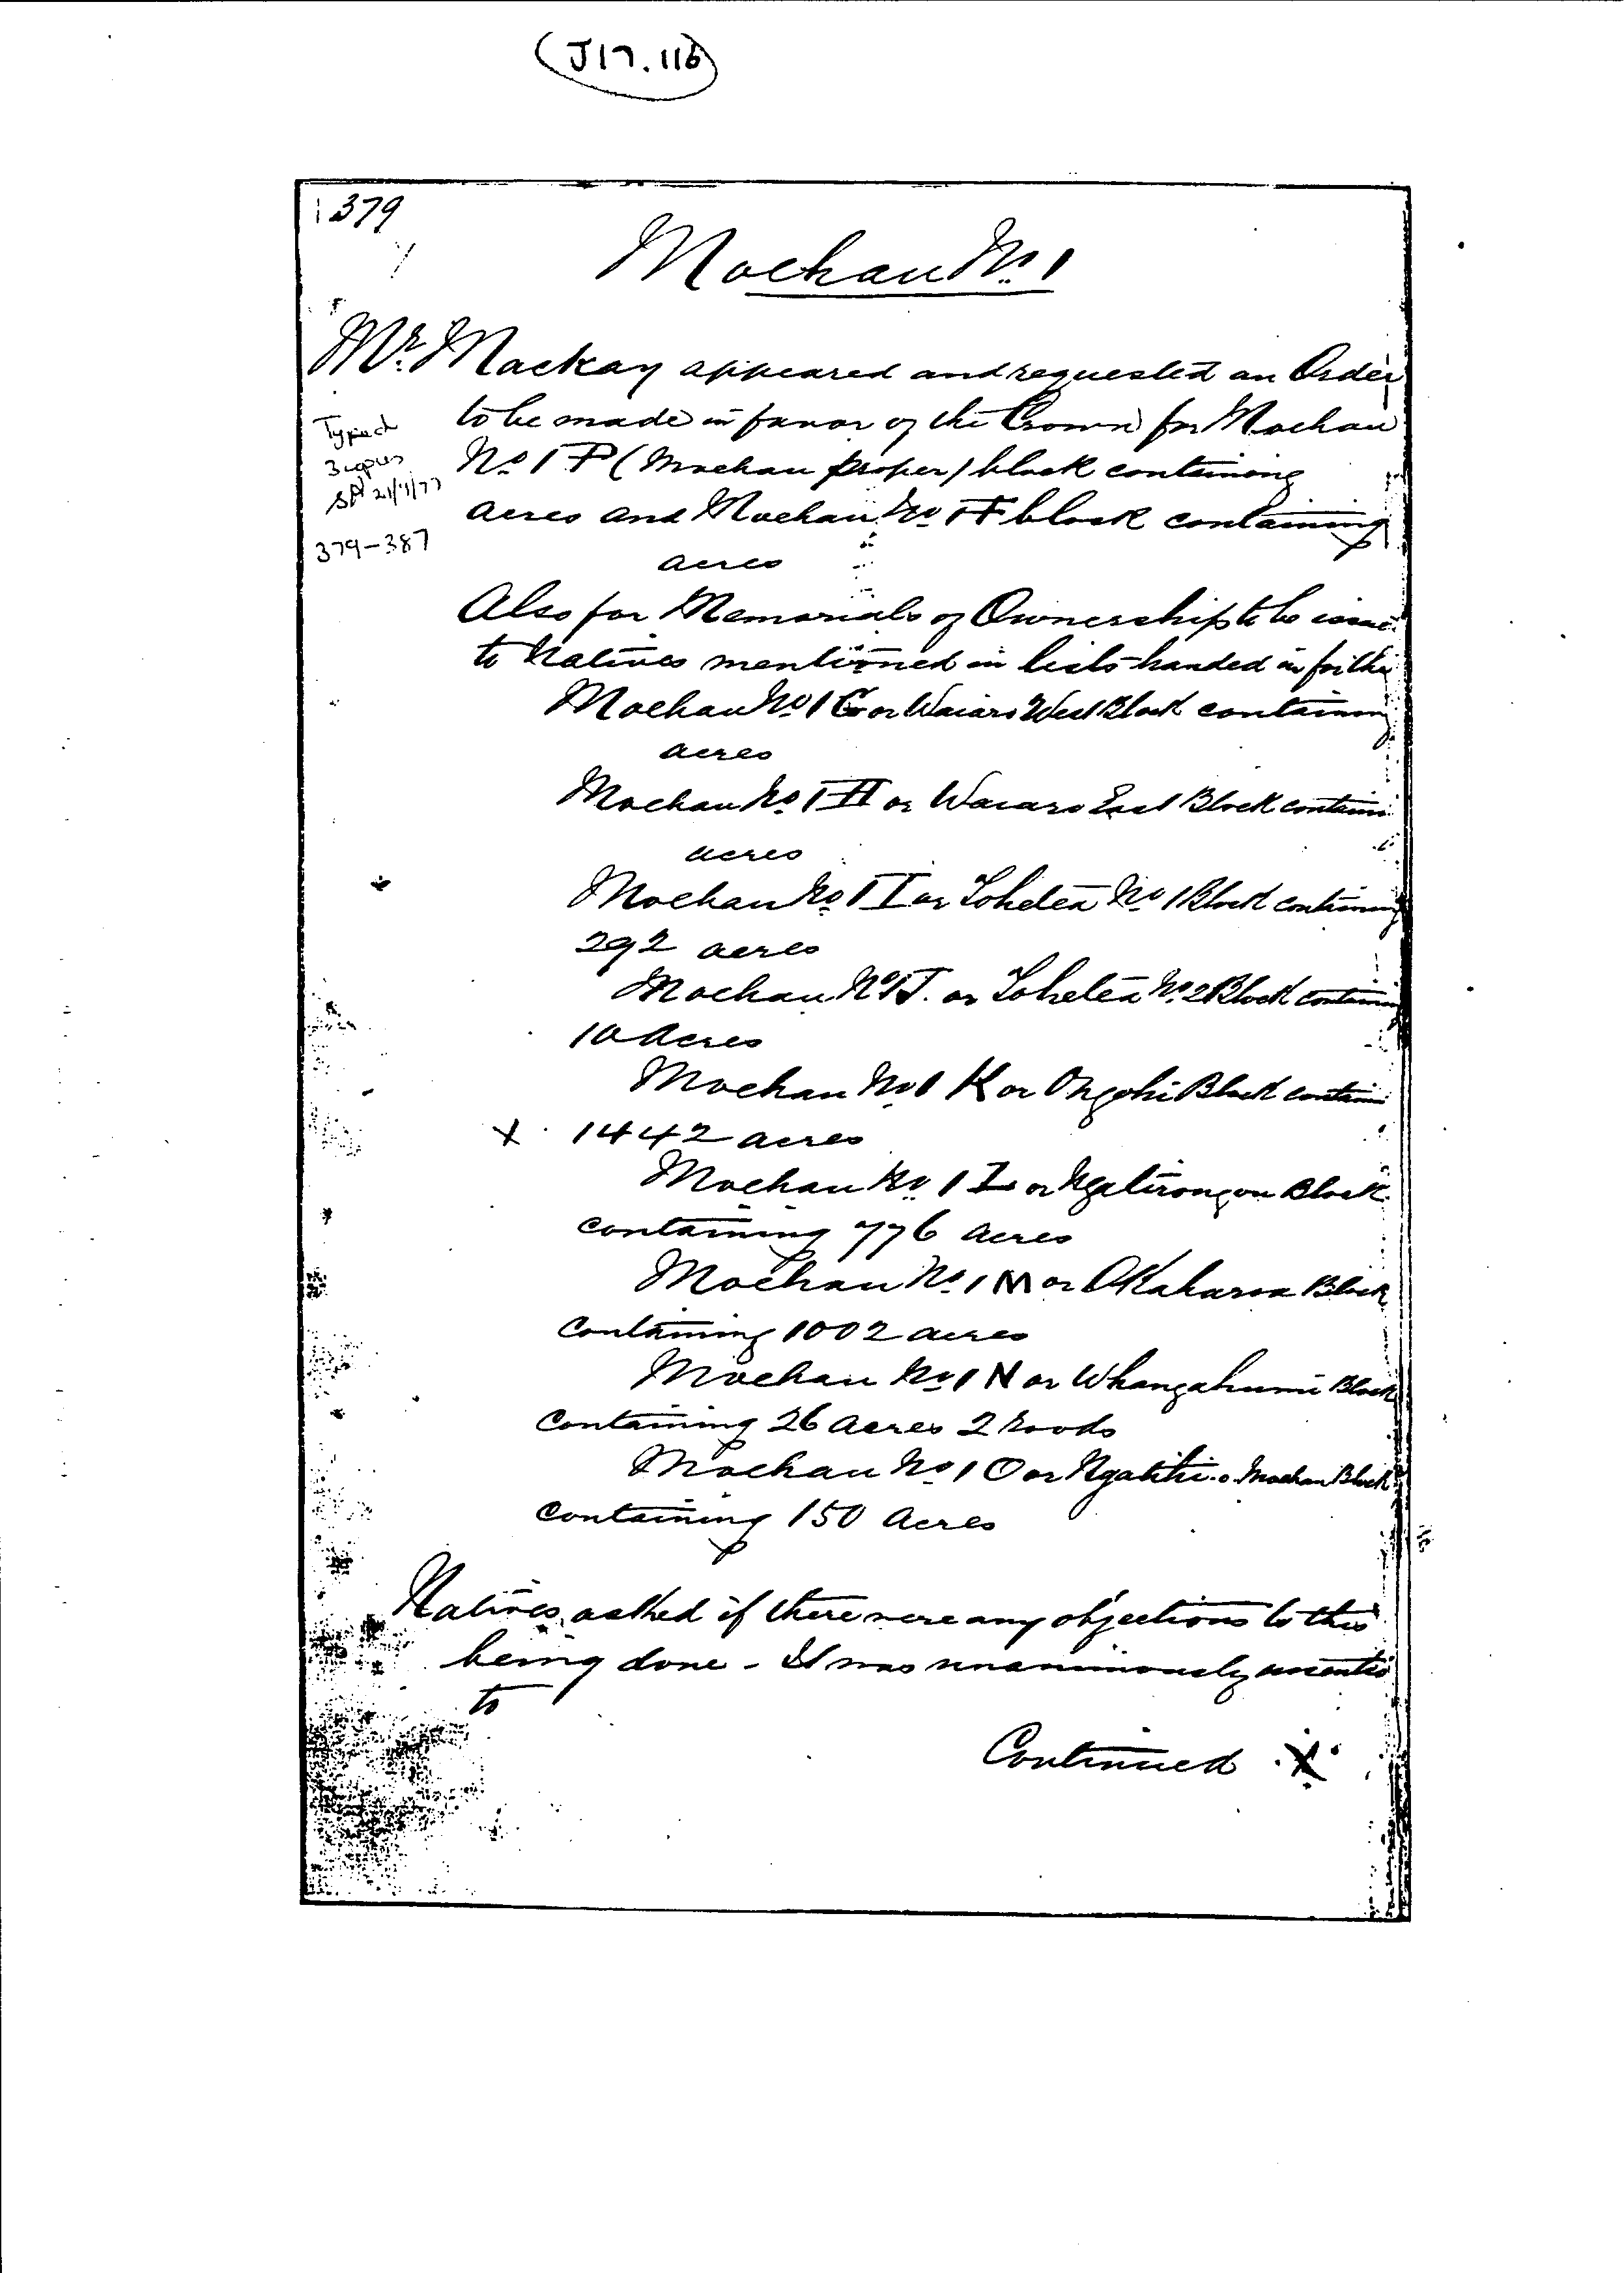 J17.116
379
Moehau No. 1
Mr. Mackay appeared and requested an Order
to be made in favor of the Crown for Moehau
No 1 P (Moehau proper) block containing
acres and Moehau No 1 F block containing
acres
Typed
3 copies
21/11/77
379-387
Also for Memorials of Ownership to be issued
to Natives mentioned in lists handed in for the
Moehau No 1 G or Waiaro West Block containing
acres
Moehau No 1 H or Waiaro East Block containi
acres
Moehau No 1 I or Tohetea No 1 Block containing
292 acres
Moehau No 1 J. or Tohetea No. 2 Block containing
10 acres
Moehau No 1 K or Ongohi Block contain
x 1442 acres
Moehau No 1 L or Ngatirongou Block
containing 776 acres
Moehau No. 1 M or Okaharoa Block
containing 1002 acres
Moehau No 1 N or Whangahumi Block
containing 26 acres 2 roods
Moehau No 1 O or Ngatihi o Moehau Block
containing 150 acres
Natives asked if there were any objections to this
being done - It was unanimously assented
to
Continued x